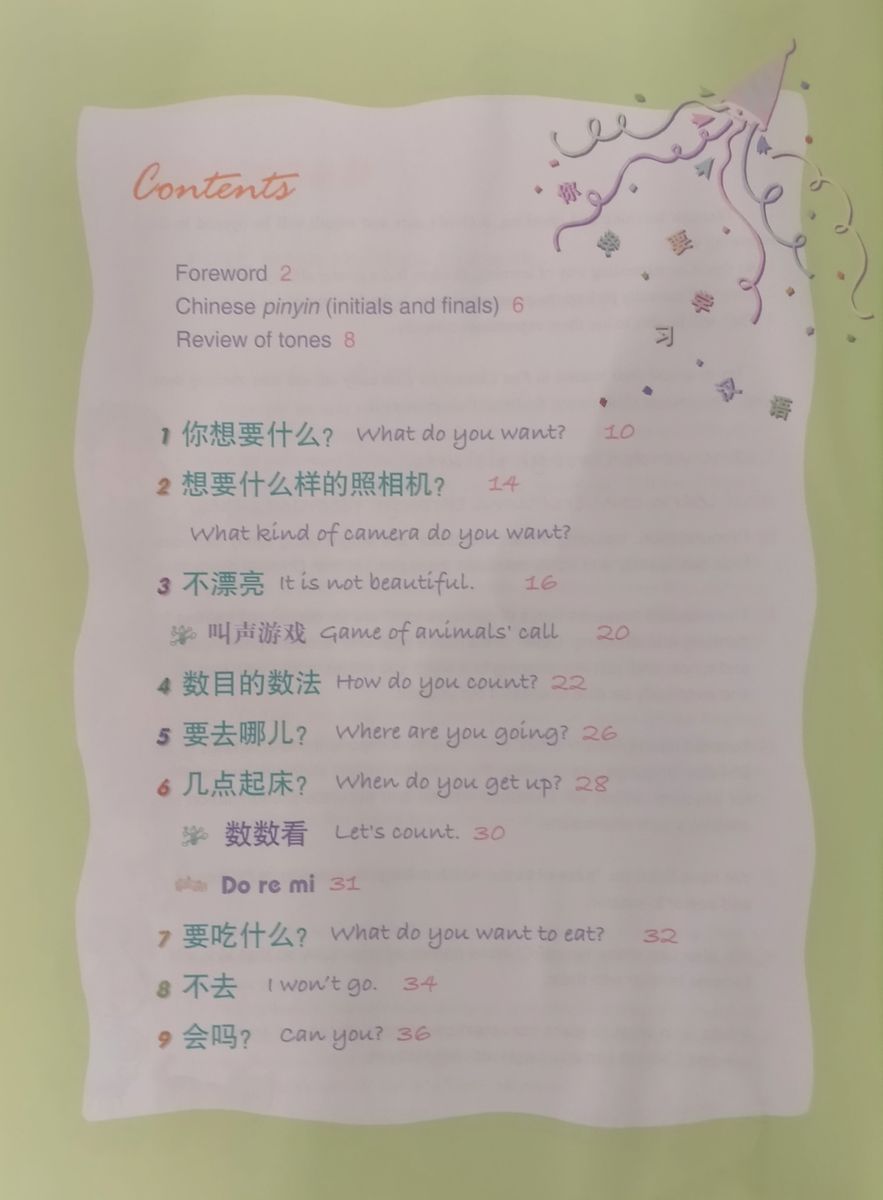 Contents
Foreword 2
Chinese pinyin (initials and finals) 6
Review of tones 8
1 你想要什么? What do you want? 10
2 想要什么样的照相机? 14
What kind of camera do you want?
3 不漂亮 It is not beautiful. 16
叫声游戏 Game of animals' call 20
4 数目的数法 How do you count? 22
5 要去哪儿? Where are you going? 26
6 几点起床? When do you get up? 28
数数看 Let's count. 30
Do re mi 31
7 要吃什么? What do you want to eat? 32
8 不去 I won't go. 34
9 会吗? Can you? 36
你
要
学
习
汉
语